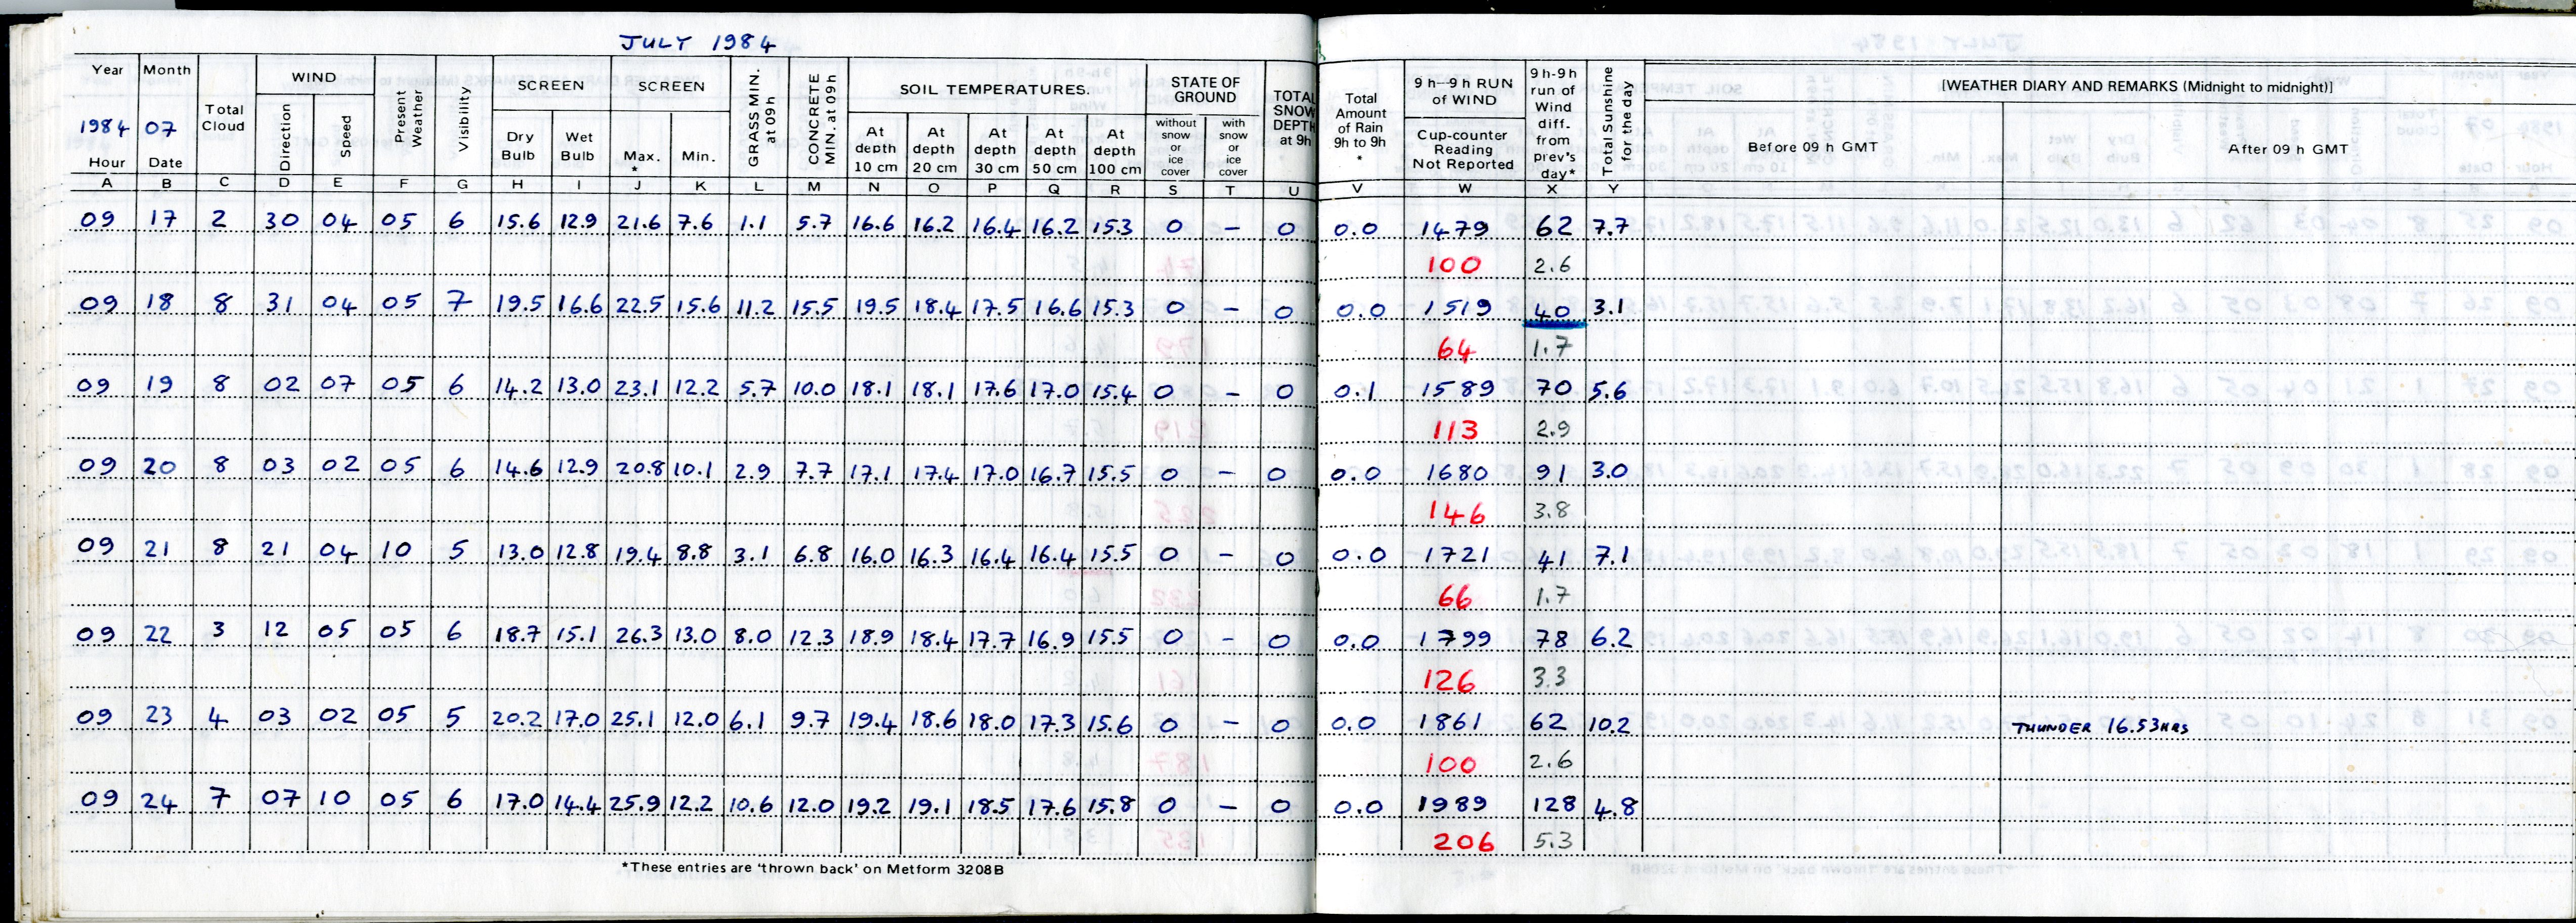 JULY 1984
Year Month Total Cloud WIND Present Weather Visibility SCREEN SCREEN GRASS MIN. at 09h CONCRETE MIN. at 09h SOIL TEMPERATURES. STATE OF GROUND TOTAL SNOW DEPTH at 9h Total Amount of Rain 9h to 9h * 9 h—9 h RUN of WIND 9 h-9h run of Wind diff. from prev's day* Total Sunshine for the day [WEATHER DIARY AND REMARKS (Midnight to midnight)]
1984 07 Direction Speed Dry Bulb Wet Bulb Max. * Min. At depth 10 cm At depth 20 cm At depth 30 cm At depth 50 cm At depth 100 cm without snow or ice cover with snow or ice cover Cup-counter Reading Not Reported Before 09 h GMT After 09 h GMT
Hour Date
A B C D E F G H I J K L M N O P Q R S T U V W X Y
09 17 2 30 04 05 6 15.6 12.9 21.6 7.6 1.1 5.7 16.6 16.2 16.4 16.2 15.3 0 – 0 0.0 1479 62 7.7
100 2.6
09 18 8 31 04 05 7 19.5 16.6 22.5 15.6 11.2 15.5 19.5 18.4 17.5 16.6 15.3 0 – 0 0.0 1519 40 3.1
64 1.7
09 19 8 02 07 05 6 14.2 13.0 23.1 12.2 5.7 10.0 18.1 18.1 17.6 17.0 15.4 0 – 0 0.1 1589 70 5.6
113 2.9
09 20 8 03 02 05 6 14.6 12.9 20.8 10.1 2.9 7.7 17.1 17.4 17.0 16.7 15.5 0 – 0 0.0 1680 91 3.0
146 3.8
09 21 8 21 04 10 5 13.0 12.8 19.4 8.8 3.1 6.8 16.0 16.3 16.4 16.4 15.5 0 – 0 0.0 1721 41 7.1
66 1.7
09 22 3 12 05 05 6 18.7 15.1 26.3 13.0 8.0 12.3 18.9 18.4 17.7 16.9 15.5 0 – 0 0.0 1799 78 6.2
126 3.3
09 23 4 03 02 05 5 20.2 17.0 25.1 12.0 6.1 9.7 19.4 18.6 18.0 17.3 15.6 0 – 0 0.0 1861 62 10.2 THUNDER 16.53HRS
100 2.6
09 24 7 07 10 05 6 17.0 14.4 25.9 12.2 10.6 12.0 19.2 19.1 18.5 17.6 15.8 0 – 0 0.0 1989 128 4.8
206 5.3
*These entries are 'thrown back' on Metform 3208B